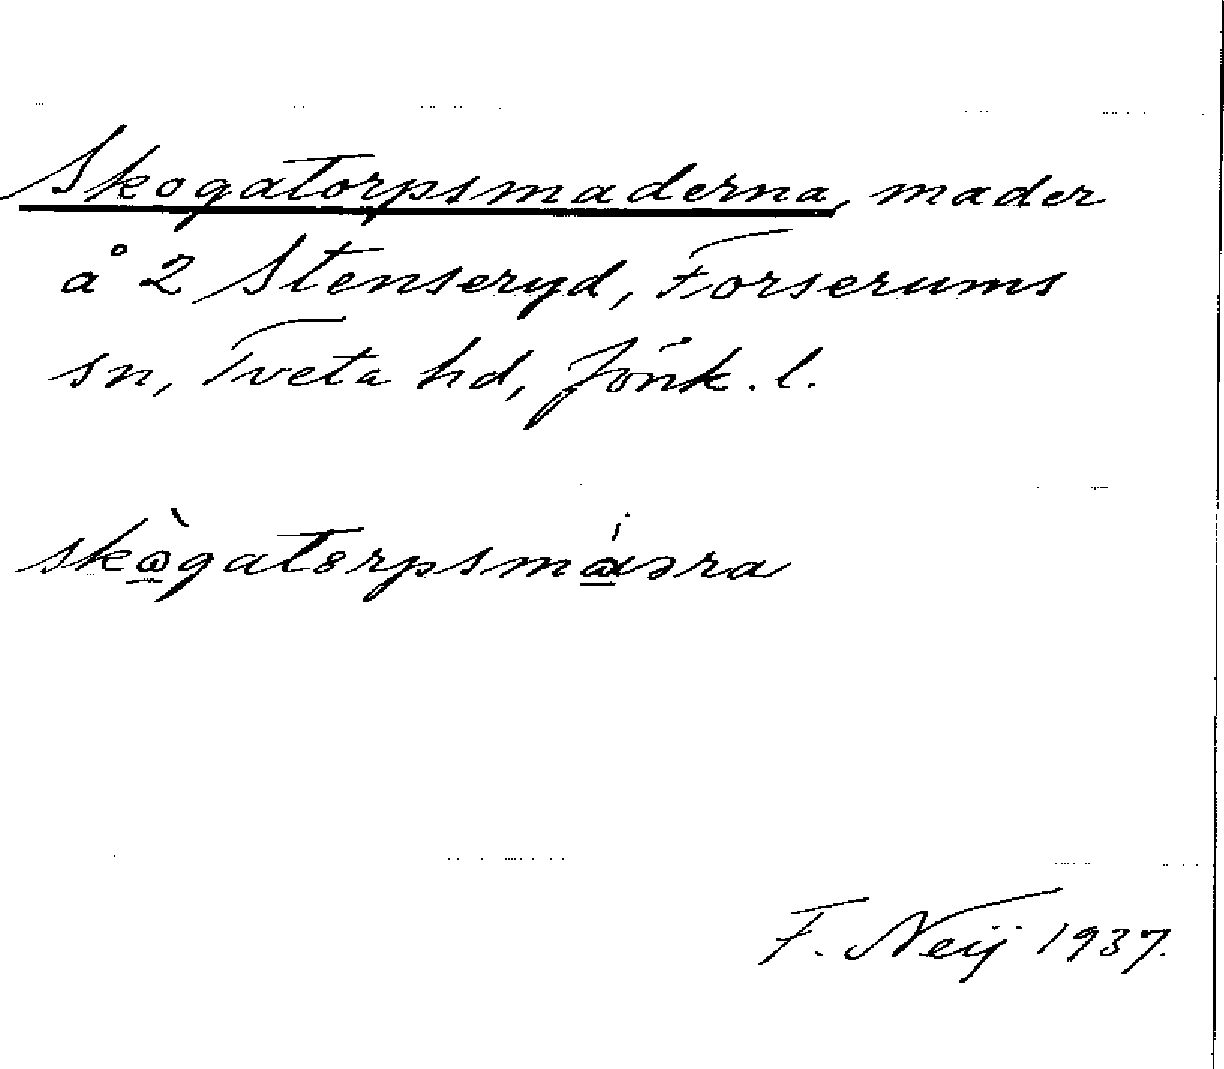 Skogatorpsmaderna, mader
å 2 Stenseryd, Forserums
sn, Tveta hd, Jönk. l.
F. Neij 1937.